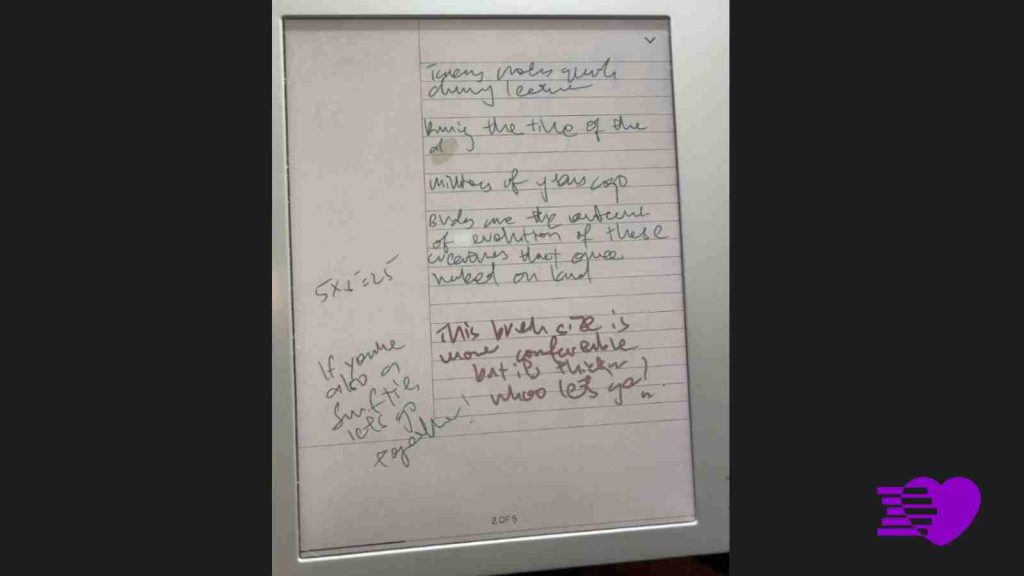 notes
during lecture
the time of the
d
millions of years ago
Birds are the
of evolution of these
creatures that once
walked on land
5x5=25
This brush size is
more comfortable
but it's thicker
whoo let's go!
If you're
also a
let's
together!
2 OF 5